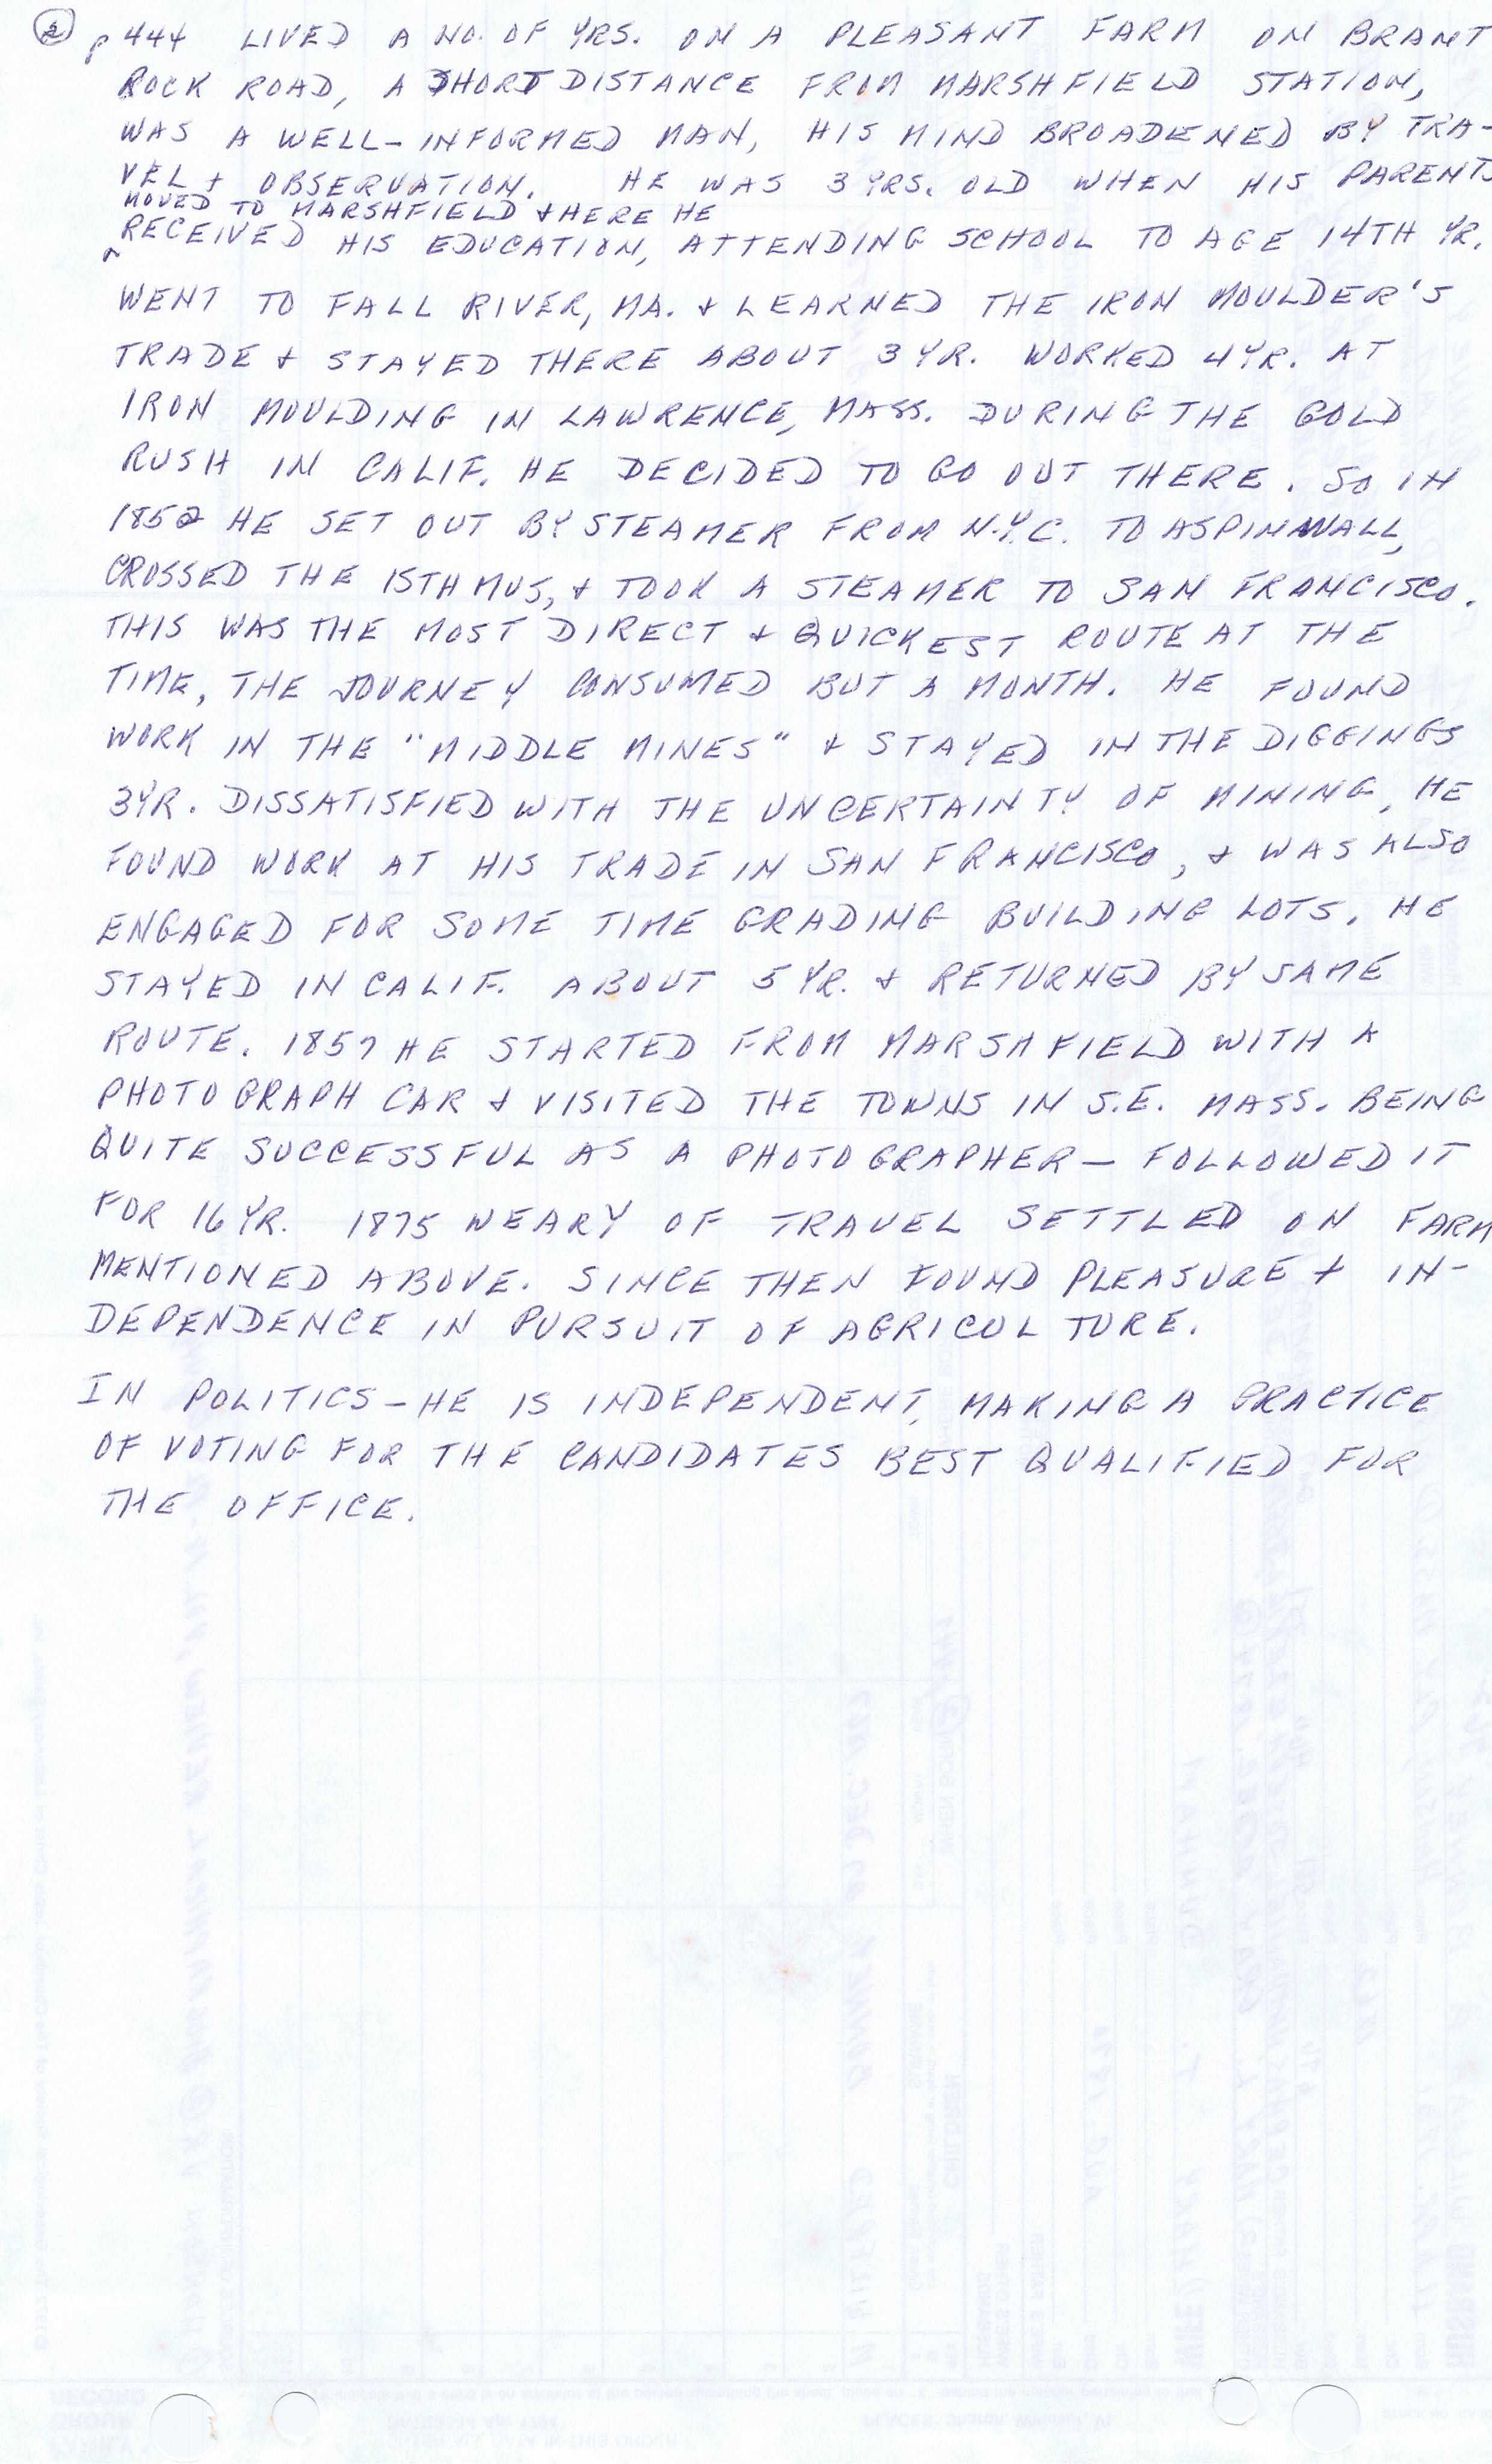 ② p 444 LIVED A NO. OF YRS. ON A PLEASANT FARM ON BRANT
ROCK ROAD, A SHORT DISTANCE FROM MARSHFIELD STATION,
WAS A WELL-INFORMED MAN, HIS MIND BROADENED BY TRA-
VEL + OBSERVATION. HE WAS 3 YRS. OLD WHEN HIS PARENTS
MOVED TO MARSHFIELD & HERE HE
^ RECEIVED HIS EDUCATION, ATTENDING SCHOOL TO AGE 14TH YR.
WENT TO FALL RIVER, MA. & LEARNED THE IRON MOULDER'S
TRADE & STAYED THERE ABOUT 3 YR. WORKED 4 YR. AT
IRON MOULDING IN LAWRENCE, MASS. DURING THE GOLD
RUSH IN CALIF. HE DECIDED TO GO OUT THERE. SO IN
1852 HE SET OUT BY STEAMER FROM N.Y.C. TO ASPINWALL,
CROSSED THE ISTHMUS, & TOOK A STEAMER TO SAN FRANCISCO.
THIS WAS THE MOST DIRECT & QUICKEST ROUTE AT THE
TIME, THE JOURNEY CONSUMED BUT A MONTH. HE FOUND
WORK IN THE "MIDDLE MINES" & STAYED IN THE DIGGINGS
3 YR. DISSATISFIED WITH THE UNCERTAINTY OF MINING, HE
FOUND WORK AT HIS TRADE IN SAN FRANCISCO, & WAS ALSO
ENGAGED FOR SOME TIME GRADING BUILDING LOTS. HE
STAYED IN CALIF. ABOUT 5 YR. & RETURNED BY SAME
ROUTE. 1857 HE STARTED FROM MARSHFIELD WITH A
PHOTOGRAPH CAR & VISITED THE TOWNS IN S.E. MASS. BEING
QUITE SUCCESSFUL AS A PHOTOGRAPHER — FOLLOWED IT
FOR 16 YR. 1875 WEARY OF TRAVEL SETTLED ON FARM
MENTIONED ABOVE. SINCE THEN FOUND PLEASURE + IN-
DEPENDENCE IN PURSUIT OF AGRICULTURE.
IN POLITICS - HE IS INDEPENDENT, MAKING A PRACTICE
OF VOTING FOR THE CANDIDATES BEST QUALIFIED FOR
THE OFFICE.